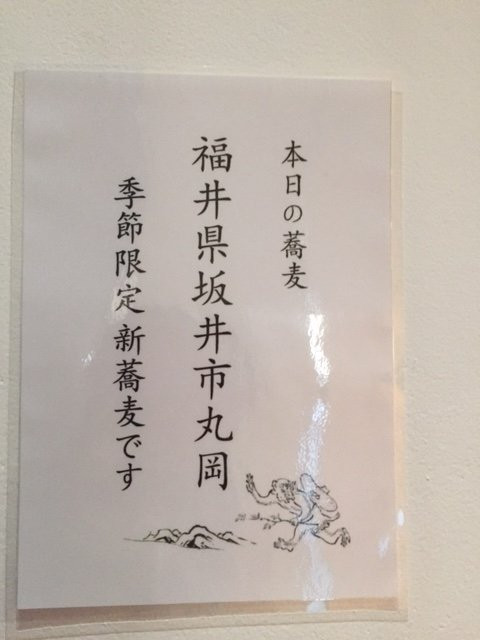 本日の蕎麦
福井県坂井市丸岡
季節限定 新蕎麦です